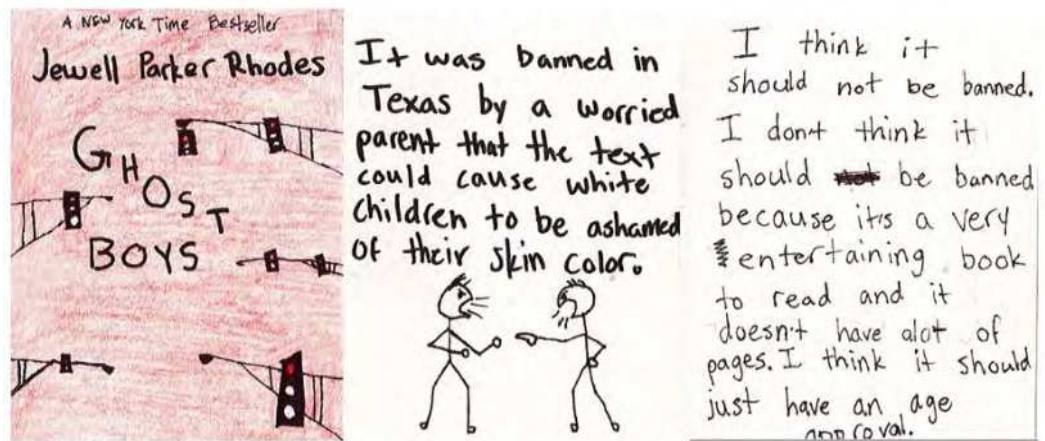 A NEW York Time Bestseller
Jewell Parker Rhodes
GHOST
BOYS
It was banned in
Texas by a worried
parent that the text
could cause white
children to be ashamed
of their skin color.
I think it
should not be banned.
I don't think it
should be banned
because it's a very
entertaining book
to read and it
doesn't have alot of
pages. I think it should
just have an age
approval.